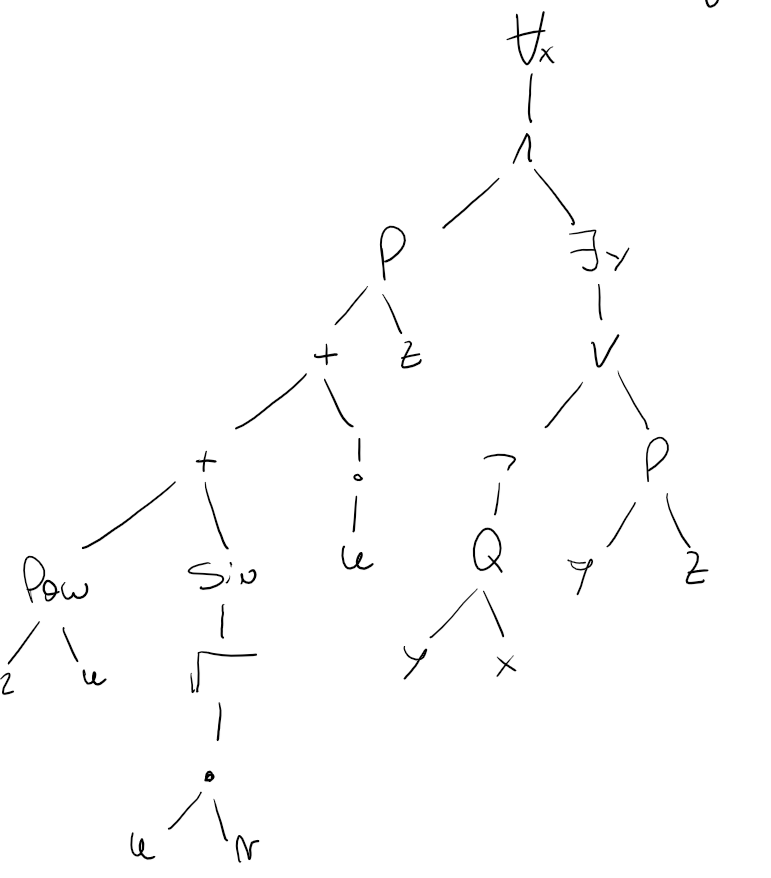 ∀x
∧
P ∃y
+ z ∨
+ ! ¬ P
Pow Sin u Q y z
2 u √ y x
·
u v